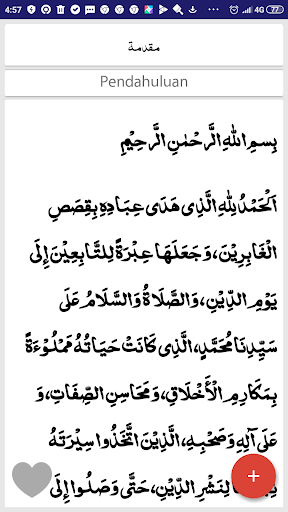 4:57
4G 77
مقدمة
Pendahuluan
بِسمِ اللهِ الرَّحْمٰنِ الرَّحِيْمِ
اَلْحَمْدُ لِلّٰهِ الَّذِى هَدَى عِبَادِهِ بِقِصَصِ
الْغَابِرِيْنَ، وَجَعَلَهَا عِبْرَةً لِلتَّابِعِيْنَ إِلَى
يَوْمِ الدِّيْنِ، وَالصَّلَاةُ وَالسَّلَامُ عَلَى
سَيِّدِنَا مُحَمَّدٍ، الَّذِى كَانَتْ حَيَاتُهُ مَمْلُوْءَةً
بِمَكَارِمِ الْأَخْلَاقِ، وَمَحَاسِنِ الصِّفَاتِ، وَ
عَلَى آلِهِ وَصَحْبِهِ، الَّذِيْنَ اتَّخَذُوا سِيْرَتَهُ
لِنَشْرِ الدِّيْنِ، حَتَّى وَصَلُوا إِلَى
+